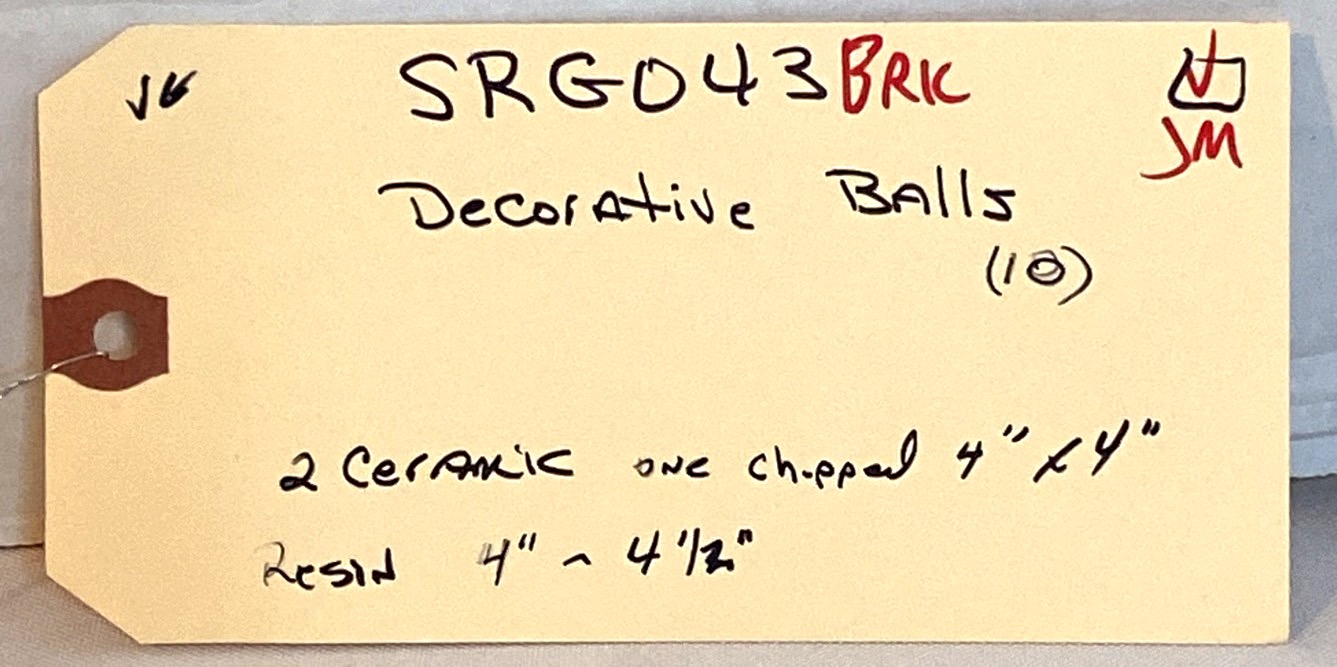 SRG043BRK
JM
Decorative Balls
(10)
2 Ceramic one chipped 4" x 4"
Resin 4" - 4 1/2"